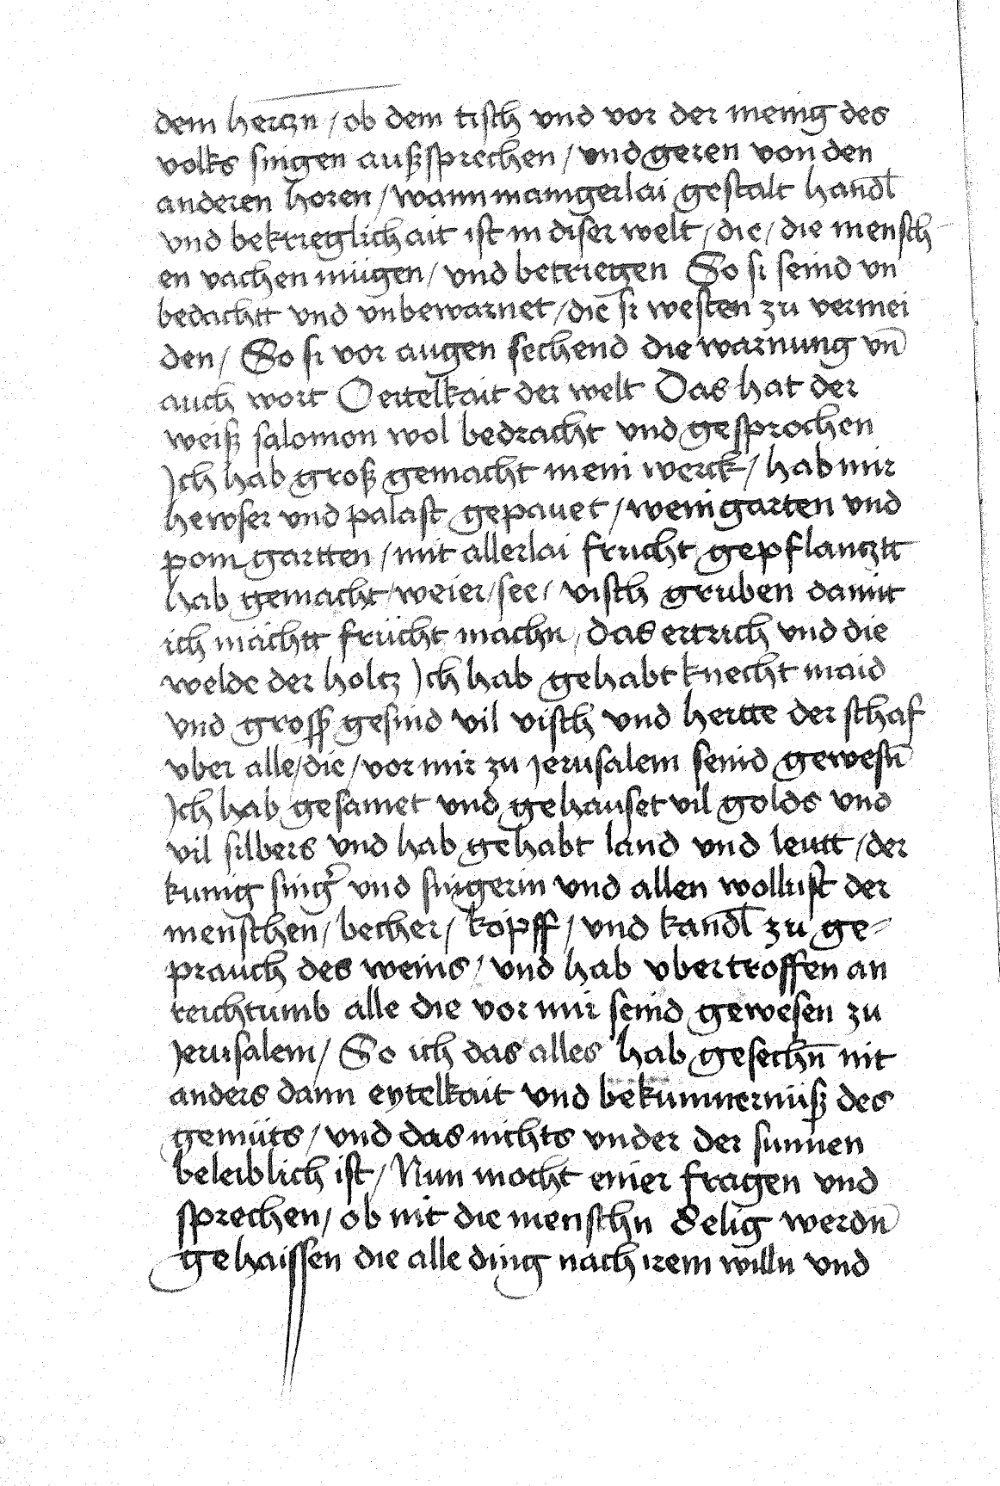 dem hertzn / ob dem tisch vnd vor der menig des
volks singen außsprechen / vnd geren von den
anderen horen / wann manigerlai gestalt handl̄
vnd bekrieglichait ist in diser welt / die / die mensch
en vachen mügen / vnd betriegen So si seind vn
bedachtt vnd vnbewarnet / die si westen zu vermei
den / So si vor augen sechend die warnung vn̄
auch wort O eitelkait der welt Das hat der
weiß salomon wol bedracht vnd gesprochen
Ich hab groß gemacht mein werck / hab mir
hewser vnd palast gepauet / weingarten vnd
pom gartten / mit allerlai frucht gepflantztt
hab gemacht / weier / see / visch gruben damit
ich mächtt frücht machn / das ertrich vnd die
welde der holtz Ich hab gehabt knecht maid
vnd gross gesind vil visch vnd hertte der schaf
vber alle / die / vor mir zu Jerusalem seind gewesn̄
Ich hab gesamet vnd gehauset vil golds vnd
vil silbers vnd hab gehabt land vnd leutt / der
kunig singr̄ vnd singerin vnd allen wollust der
menschen / becher / köpff / vnd kandl̄ zu ge⸗
prauch des weins / vnd hab vbertroffen an
reichtumb alle die vor mir seind gewesen zu
Jerusalem / So ich das alles hab gesechn̄ nit
anders dann eytelkait vnd bekümmernüß des
gemüts / vnd das nichts vnder der sunnen
beleiblich ist / Nun mocht einer fragen vnd
sprechen / ob nit die menschn selig werdn̄
gehaissen die alle ding nach irem willn vnd